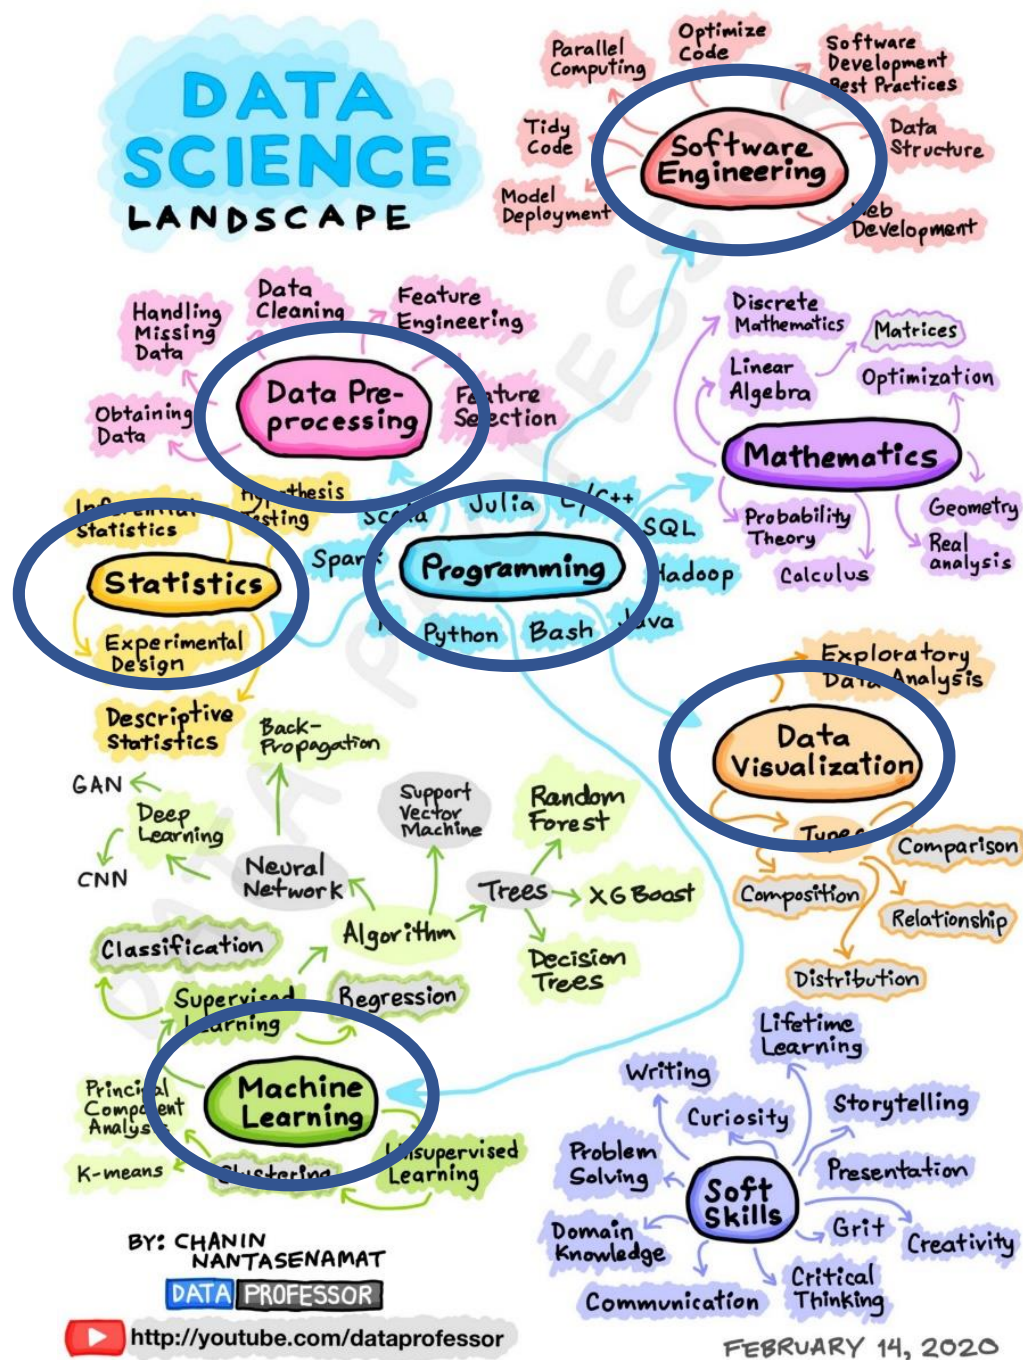 DATA
SCIENCE
LANDSCAPE
Parallel
Computing
Optimize
Code
Software
Development
Best Practices
Tidy
Code
Software
Engineering
Data
Structure
Model
Deployment
Web
Development
Handling
Missing
Data
Data
Cleaning
Feature
Engineering
Obtaining
Data
Data Pre-
processing
Feature
Selection
Discrete
Mathematics
Matrices
Linear
Algebra
Optimization
Mathematics
Probability
Theory
Calculus
Geometry
Real
analysis
Inferential
Statistics
Hypothesis
Testing
Statistics
Experimental
Design
Descriptive
Statistics
Scala
Julia
C/C++
SQL
Spark
Programming
Hadoop
Python
Bash
Java
Exploratory
Data Analysis
Data
Visualization
Types
Comparison
Composition
Relationship
Distribution
Back-
Propagation
GAN
Deep
Learning
CNN
Neural
Network
Support
Vector
Machine
Random
Forest
Trees
XGBoost
Decision
Trees
Algorithm
Classification
Supervised
Learning
Regression
Machine
Learning
Principal
Component
Analysis
K-means
Clustering
Unsupervised
Learning
Lifetime
Learning
Writing
Curiosity
Storytelling
Problem
Solving
Presentation
Soft
Skills
Domain
Knowledge
Grit
Creativity
Communication
Critical
Thinking
BY: CHANIN
NANTASENAMAT
DATA PROFESSOR
http://youtube.com/dataprofessor
FEBRUARY 14, 2020
DATA PROFESSOR